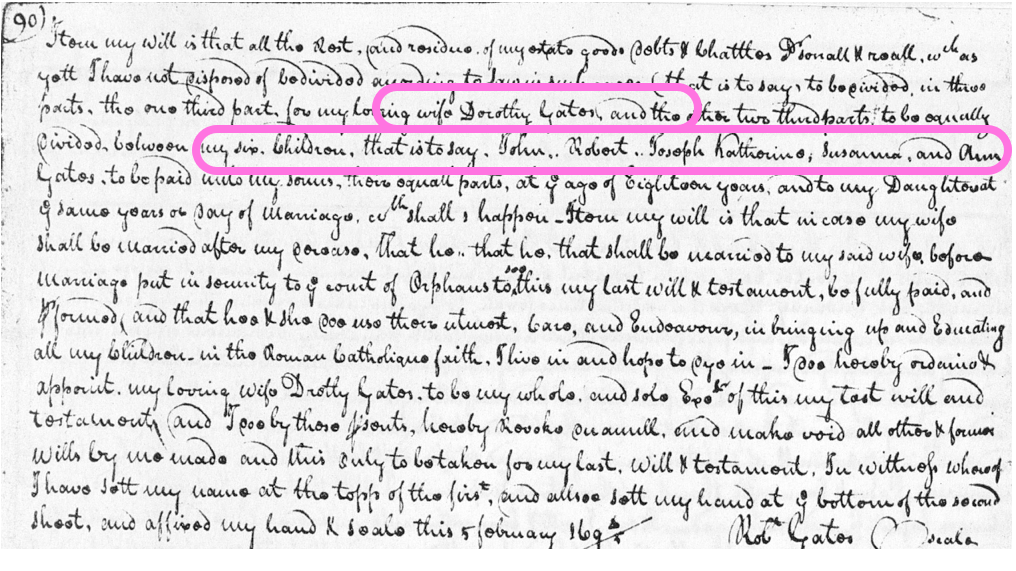 90)
Item my will is that all the Rest, and residue of my estate goods Debts & Chattles P'sonall & reall, wch as
yett I have not disposed of be divided according to (that is to say to be divided, in three
parts, the one third part, for my loving wife Dorothy Gates, and the other two third parts, to be equally
divided, between my six Children, that is to say, John, Robert, Joseph Katherine, Susanna, and Ann
Gates, to be paid unto my sonns, their equall parts, at ye age of Eighteen years, and to my Daughters at
ye same years or day of marriage, wch shall happen - Item my will is that in case my wife
shall be married after my decease, That he, that he, that shall be married to my said wife, before
marriage put in security to ye court of Orphans to see this my last will & testament, be fully paid, and
p'formed, and that hee & she doe use there utmost, Care, and Endeavour, in bringing up and Educating
all my Children in the Roman Catholique faith, I live in and hope to dye in - I doe hereby ordaine &
appoint, my loving wife Drothy Gates, to be my whole, and sole Exor of this my last will and
testament, and I doe by these p'sents, hereby Revoke and make void all other & former
Wills by me made and this only to be taken for my last, will & testament, In wittness whereof
I have sett my name at the topp of the first, and allsoe sett my hand at ye bottom of the second
sheet, and affixed my hand & seale this 5 february 169
Robt Gates seale